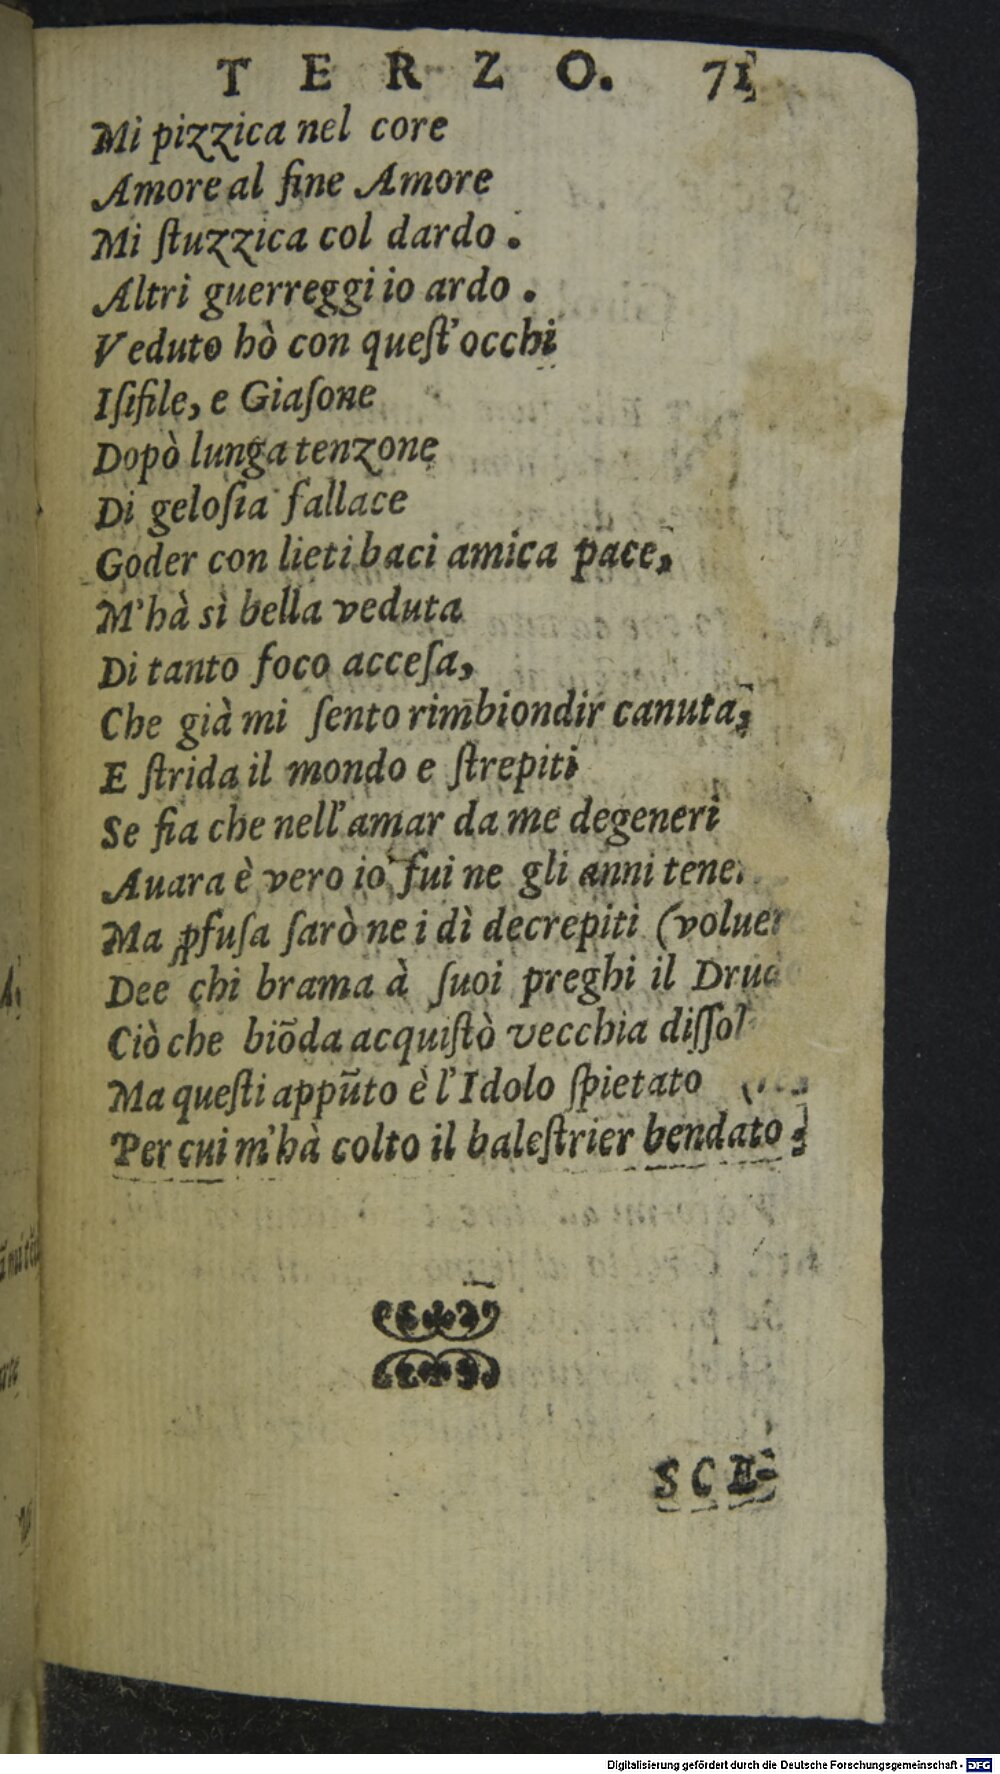 TERZO. 71
Mi pizzica nel core
Amore al fine Amore
Mi ſtuzzica col dardo.
Altri guerreggi io ardo.
Veduto hò con queſt'occhi
Iſifile, e Giaſone
Dopò lunga tenzone
Di geloſia fallace
Goder con lieti baci amica pace,
M'hà sì bella veduta
Di tanto foco acceſa,
Che già mi ſento rimbiondir canuta,
E ſtrida il mondo e ſtrepiti
Se fia che nell'amar da me degeneri
Auara è vero io fui ne gli anni
Ma ꝓfuſa ſarò ne i dì decrepiti
Dee chi brama à ſuoi preghi il
Ciò che biõda acquiſtò vecchia
Ma queſti appũto è l'Idolo ſpietato
Per cui m'hà colto il baleſtrier bendato.
SCE-
Digitalisierung gefördert durch die Deutsche Forschungsgemeinschaft - DFG